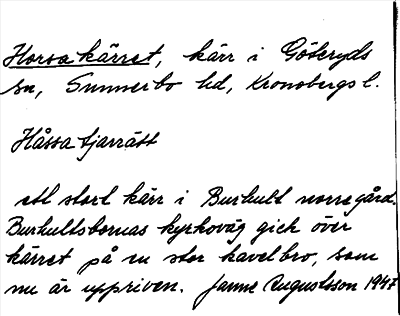 Horsakärret, kärr i Göteryds
sn, Sunnerbo hd, Kronobergs l.
Håssatjarrätt
ett stort kärr i Burhult norregård.
Burhultsbornas kyrkoväg gick över
kärret på en stor kavelbro, som
nu är uppriven. Janne Augustsson 1947